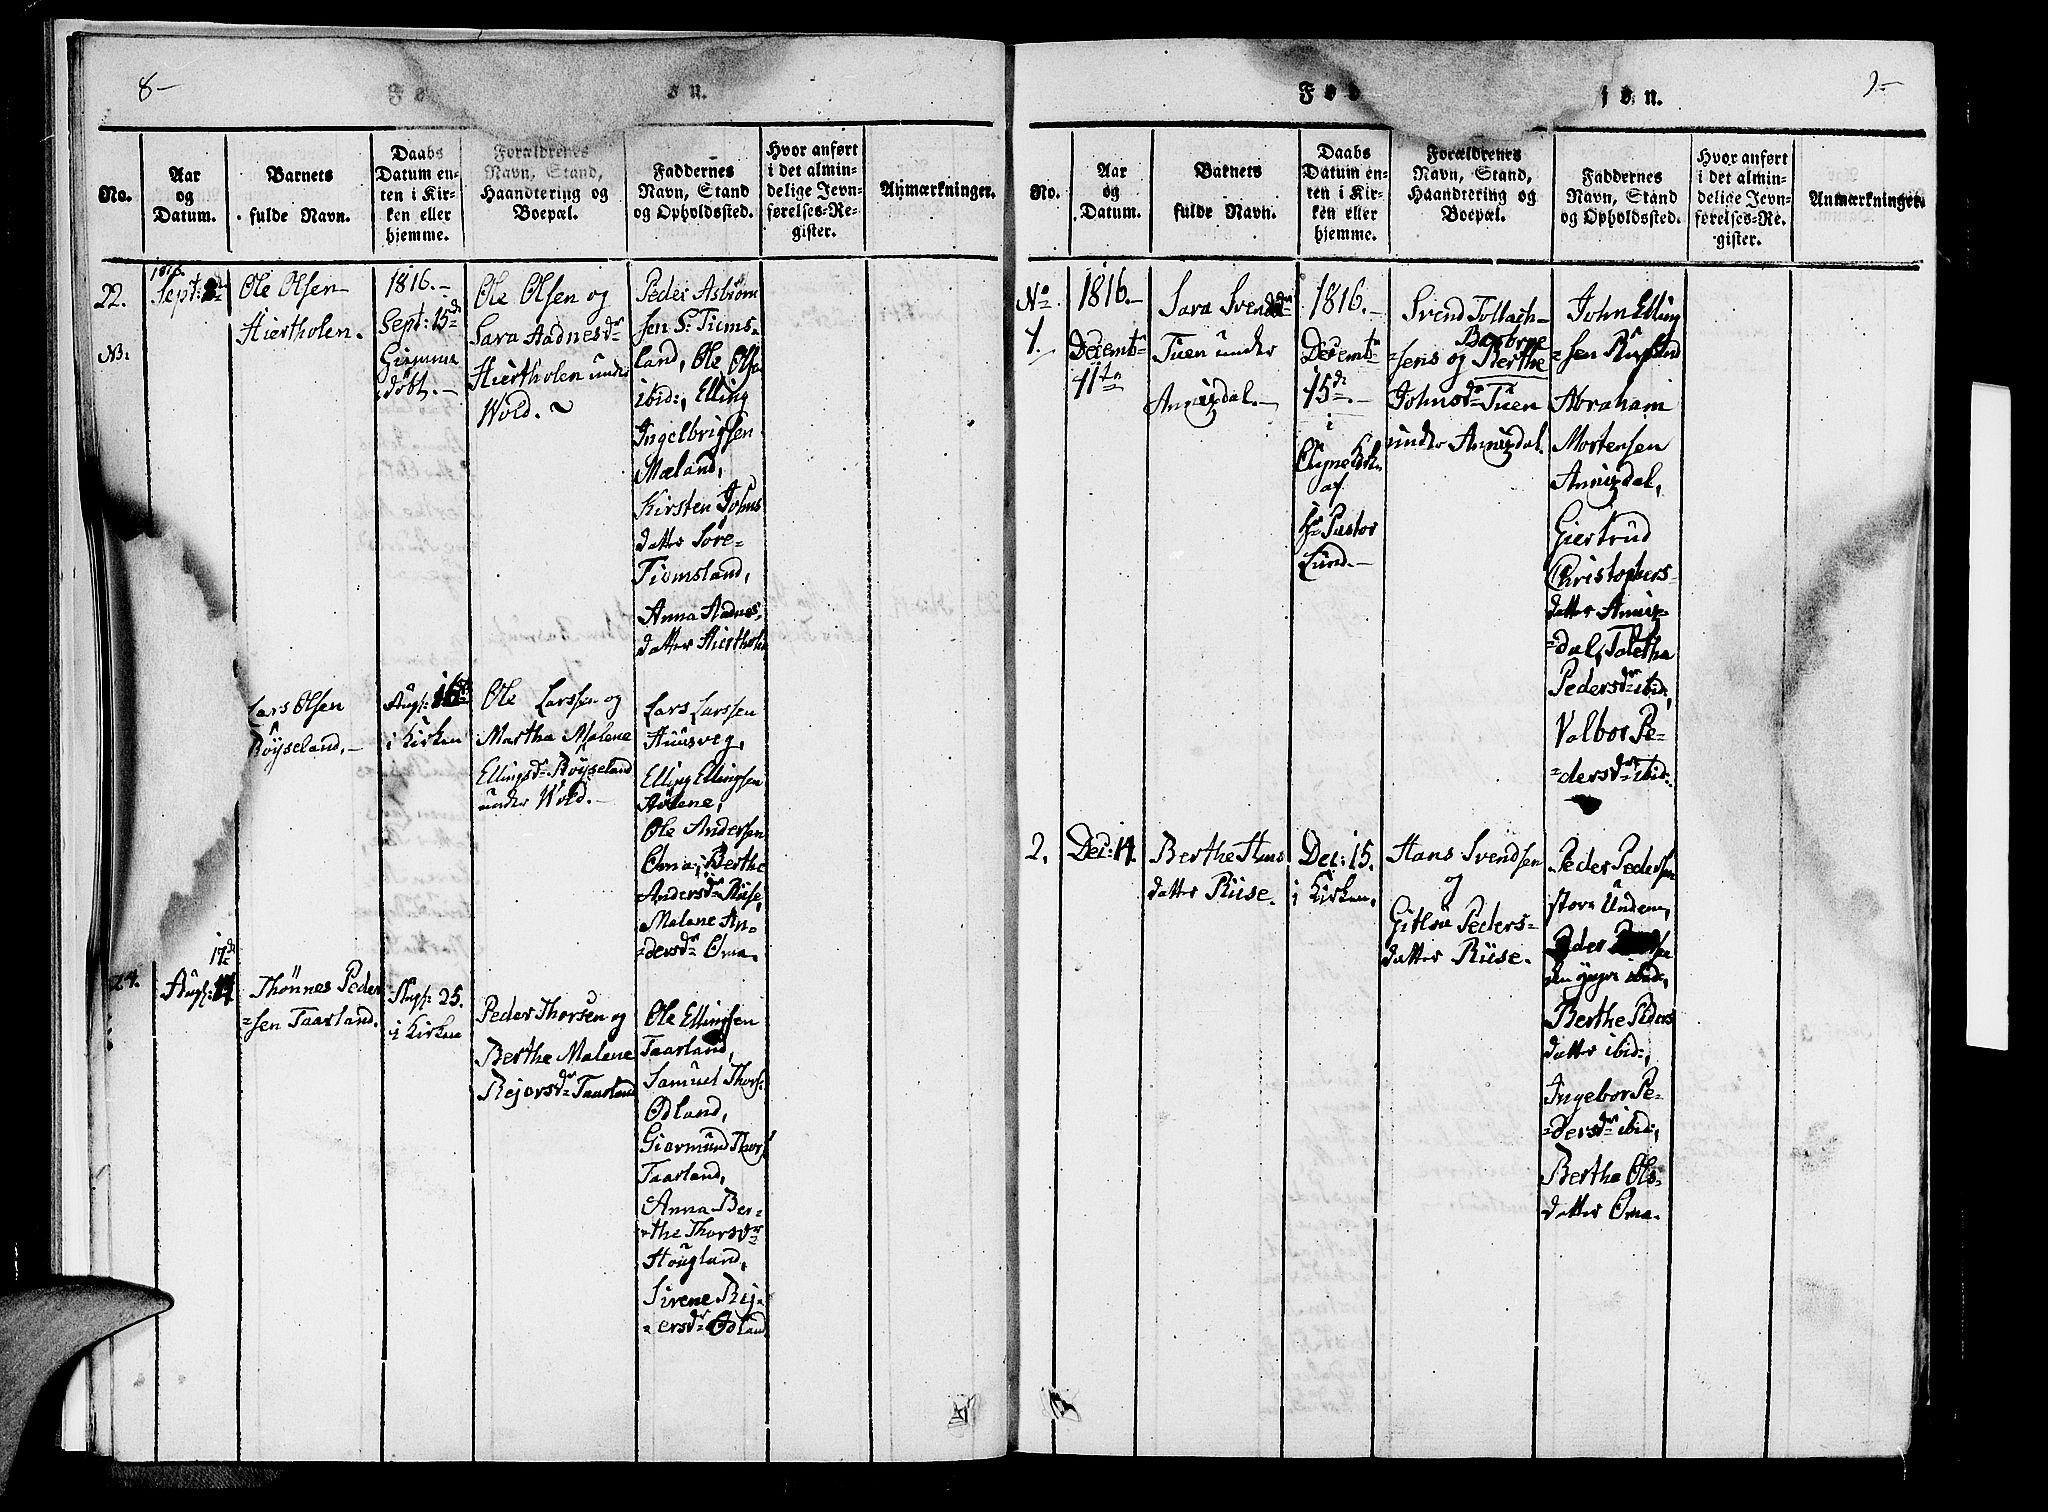 8-
F n.
No.
Aar
og
Datum.
Barnets
fulde Navn.
Daabs
Datum en-
ten i Kir-
ken eller
hjemme.
Forældrenes
Navn, Stand,
Haandtering og
Boepæl.
Faddernes
Navn, Stand
og Opholdssted.
Hvor anført
i det almin-
delige Jevn-
førelses-Re-
gister.
Anmærkninger.
22.
Sept:
Ole Olsen
Hiertholen.
1816.-
Sept: 15de
døbt.-
Ole Olsen og
Sara Aadnesdr
Hiertholen under
Wold.
Peder Asbiørn
sen S: Tiems-
land, Ole Ols
ibid:, Elling
Ingelbrigtsen
Mæland,
Kirsten Johns
datter Søre-
Tiemsland,
Anna Aadnes-
datter Hierthole
Lars Olsen
Röyseland.-
Aug: 16
i Kirken
Ole Larssen og
Martha Malene
Ellingsdr Röyseland
under Wold.-
Lars Larssen
Huusveg,
Elling Ellingsen
Ole Andersen
Oma, Berthe
Andersdr Riise,
Malene An-
=dersdr Oma.
24.
17de
Aug:
Thönnes Peder
=sen Taarland.
Aug: 25.
i Kirken
Peder Thorsen og
Berthe Malene
Rejorsdr Taarland
Ole Ellingsen
Taarland,
Samuel Thors:
Ödland,
Giermund Thors
Taarland,
Anna Ber-
=the Thorsdr
Hougland,
Sirene Rej-
=ersdr Ödland
9-
F ion.
No.
Aar
og
Datum.
Barnets
fulde Navn.
Daabs
Datum en-
ten i Kir-
ken eller
hjemme.
Forældrenes
Navn, Stand,
Haandtering og
Boepæl.
Faddernes
Navn, Stand
og Opholdssted.
Hvor anført
i det almin-
delige Jevn-
førelses-Re-
gister.
Anmærkninger.
No
1.
1816.-
Decembr
11te
Sara Svendsdr
Tuen under
Anuizdal.-
1816.-
Decembr
15de.-
i
af
Hr Pastor
Lund.-
Svend Tollach-
=sens og Berthe
Johnsdr Tuen
under Anuizdal.
John Elling
=sen
Abraham
Mortensen
Anuizdal,
Giertrud
Christophers-
datter Anuiz-
=dal, Taletha
Pedersdr ibid:,
Valbor Pe-
=dersdr ibid:.
2.
Dec: 11.
Berthe Hans
datter Riise.
Dec: 15.
i Kirken.
Hans Svendsen
og
Gitlou Peders-
datter Riise.
Peder Pedersen
store Undem,
Peder
den yngre ibid:,
Berthe Peders
datter ibid:,
Ingebor Pe-
=dersdr ibid:,
Berthe Ols-
datter Oma.